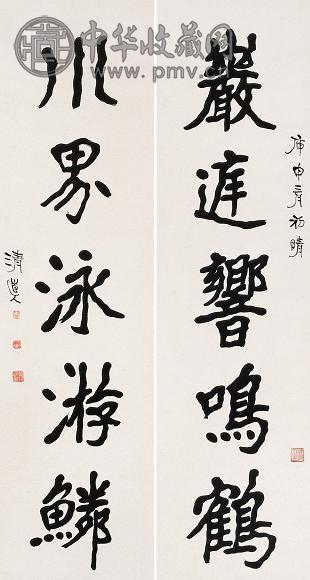 中华收藏网
www.pmv.cn
嚴庭響鳴鶴
庚申初晴
川界泳游鱗
清道人